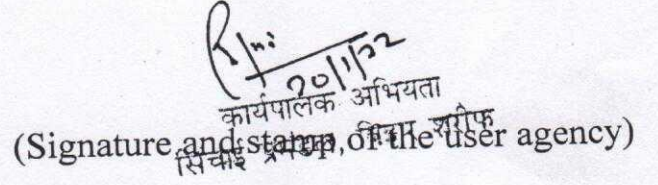 20/1/22
कार्यपालक अभियता
(Signature and stamp of the user agency)
सिंचाई प्रमण्डल, शरीफ